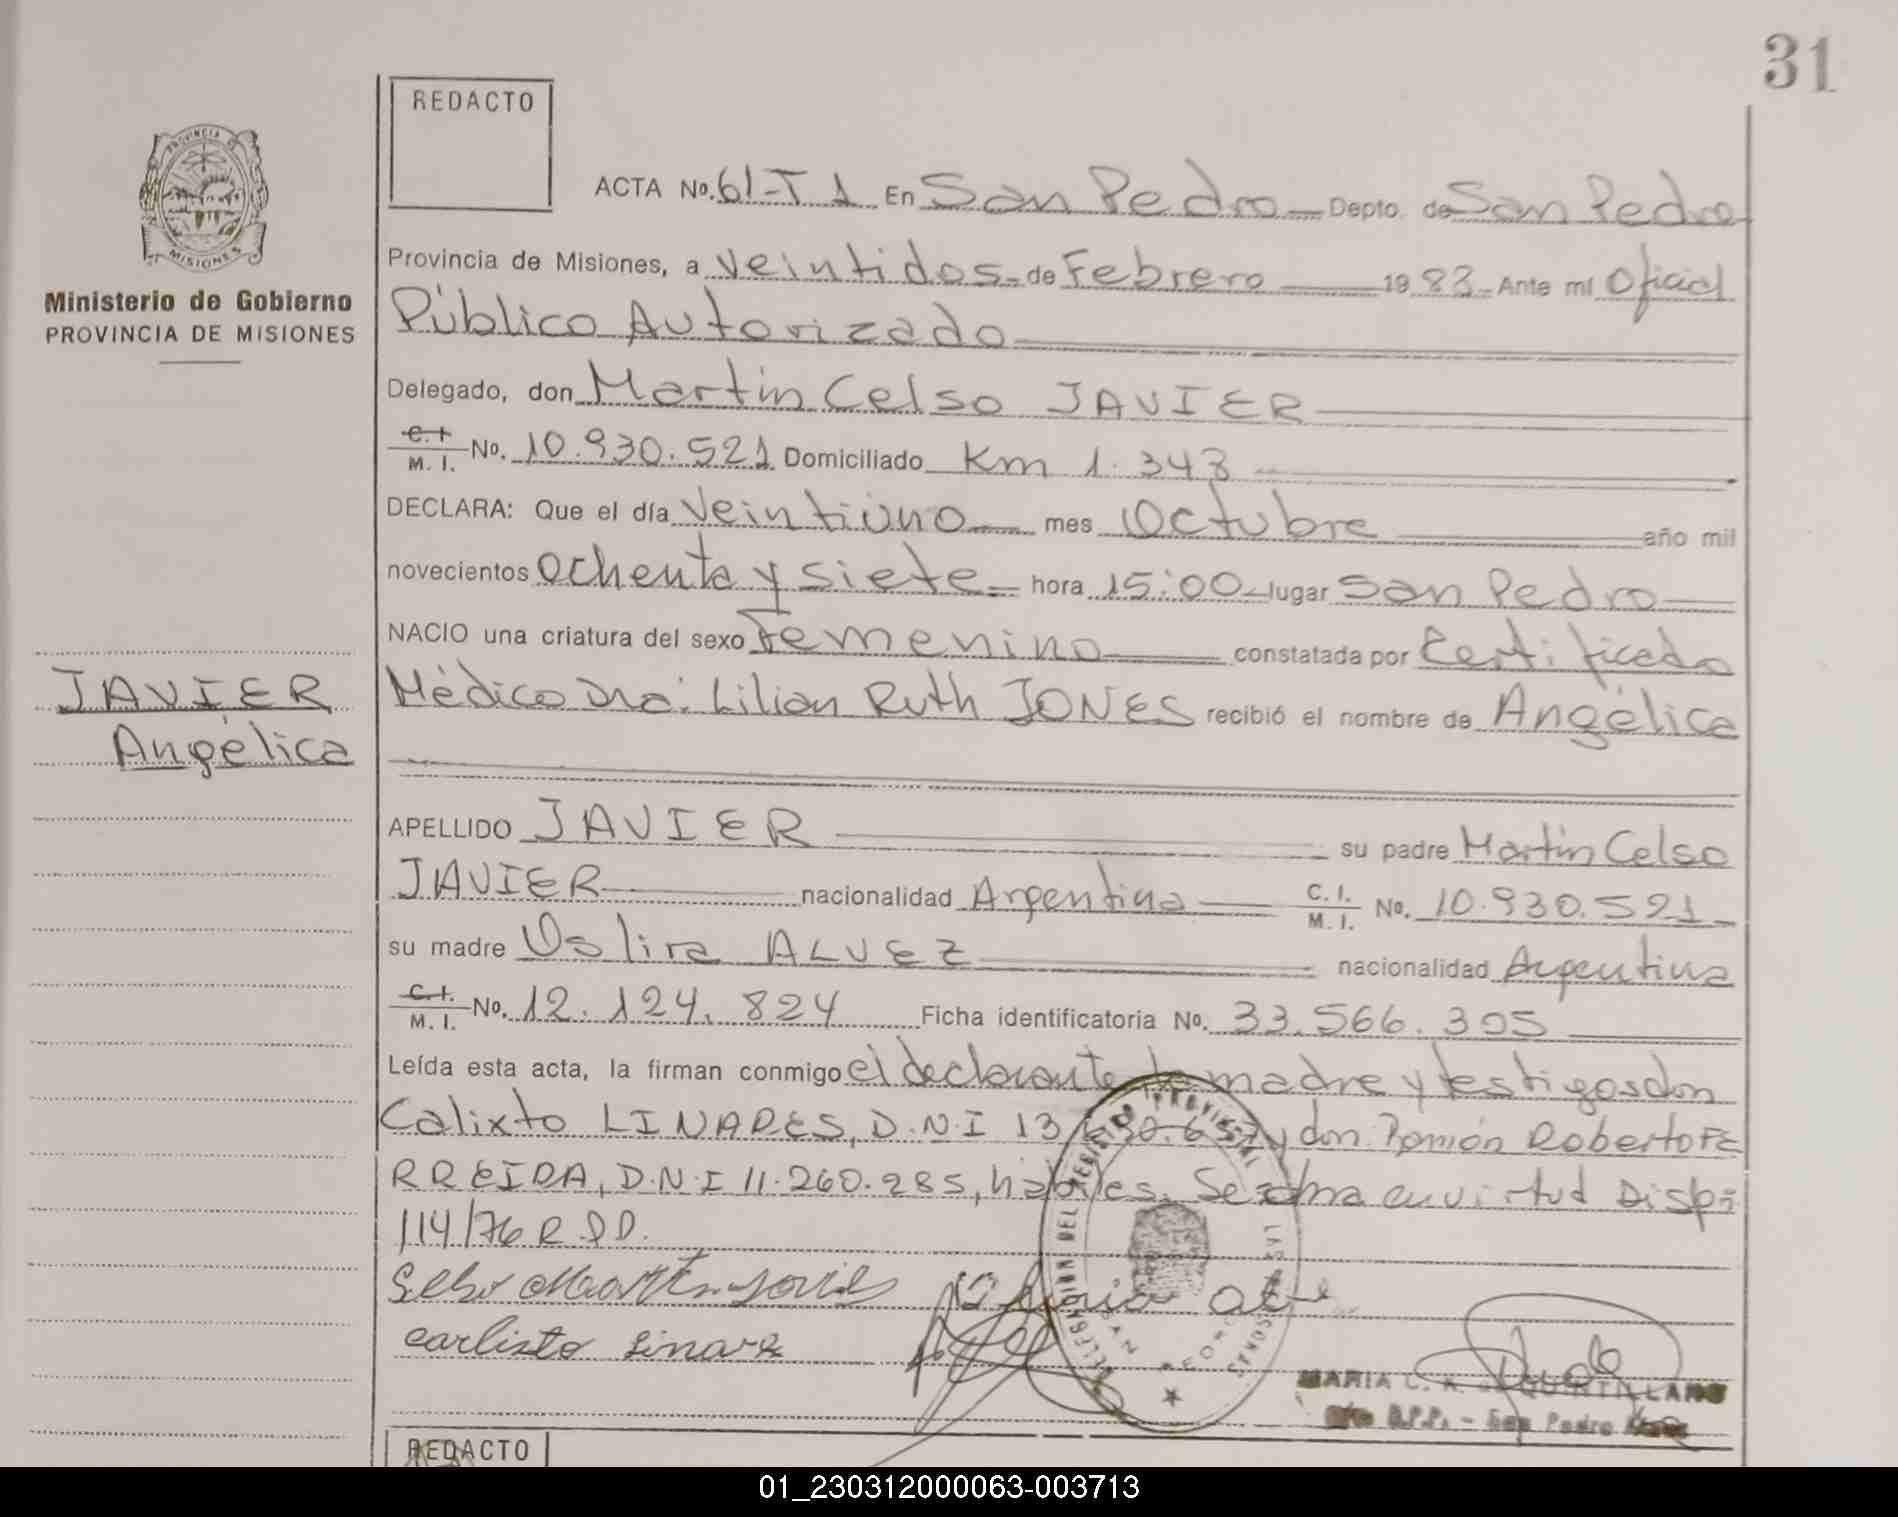 31
REDACTO
PROVINCIA DE
MISIONES
Ministerio de Gobierno
PROVINCIA DE MISIONES
ACTA No. 61-T 1 En San Pedro Depto. de San Pedro
Provincia de Misiones, a veintidos de Febrero 1983 Ante mí Oficial
Público Autorizado
Delegado, don Martin Celso JAVIER
C.I. M.I. No. 10.930.521 Domiciliado Km 1.343
DECLARA: Que el día veintiúno mes Octubre año mil
novecientos ochenta y siete hora 15:00 lugar San Pedro
NACIO una criatura del sexo Femenino constatada por Certificado
Médico Dra: Lilian Ruth JONES recibió el nombre de Angélica
JAVIER
Angélica
APELLIDO JAVIER su padre Martin Celso
JAVIER nacionalidad Argentina C.I. M.I. No. 10.930.521
su madre ALVEZ nacionalidad Argentina
C.I. M.I. No. 12.124.824 Ficha identificatoria No. 33.566.305
Leída esta acta, la firman conmigo el declarante la madre y testigos don
Calixto LINARES, D.N.I 13 y don Ramón Roberto FE
RREIRA, D.N.I 11.260.285, hábiles. en virtud Disp:
114/76 R.P.P.
Celso Martin Javier
carlisto Linare
DELEGACION DEL REGISTRO PROVINCIAL DE LAS PERSONAS
SAN PEDRO
MARIA C. QUINTILLANO
R.P.P. - San Pedro
REDACTO
01_230312000063-003713